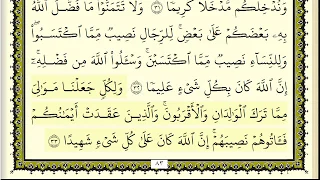 وَنُدْخِلْكُم مُّدْخَلًا كَرِيمًا ﴿٣١﴾ وَلَا تَتَمَنَّوْا۟ مَا فَضَّلَ ٱللَّهُ
بِهِۦ بَعْضَكُمْ عَلَىٰ بَعْضٍ ۚ لِّلرِّجَالِ نَصِيبٌ مِّمَّا ٱكْتَسَبُوا۟ ۖ
وَلِلنِّسَآءِ نَصِيبٌ مِّمَّا ٱكْتَسَبْنَ ۚ وَسْـَٔلُوا۟ ٱللَّهَ مِن فَضْلِهِۦٓ ۗ
إِنَّ ٱللَّهَ كَانَ بِكُلِّ شَىْءٍ عَلِيمًا ﴿٣٢﴾ وَلِكُلٍّ جَعَلْنَا مَوَٰلِىَ
مِمَّا تَرَكَ ٱلْوَٰلِدَانِ وَٱلْأَقْرَبُونَ ۚ وَٱلَّذِينَ عَقَدَتْ أَيْمَٰنُكُمْ
فَـَٔاتُوهُمْ نَصِيبَهُمْ ۚ إِنَّ ٱللَّهَ كَانَ عَلَىٰ كُلِّ شَىْءٍ شَهِيدًا ﴿٣٣﴾
٨٣